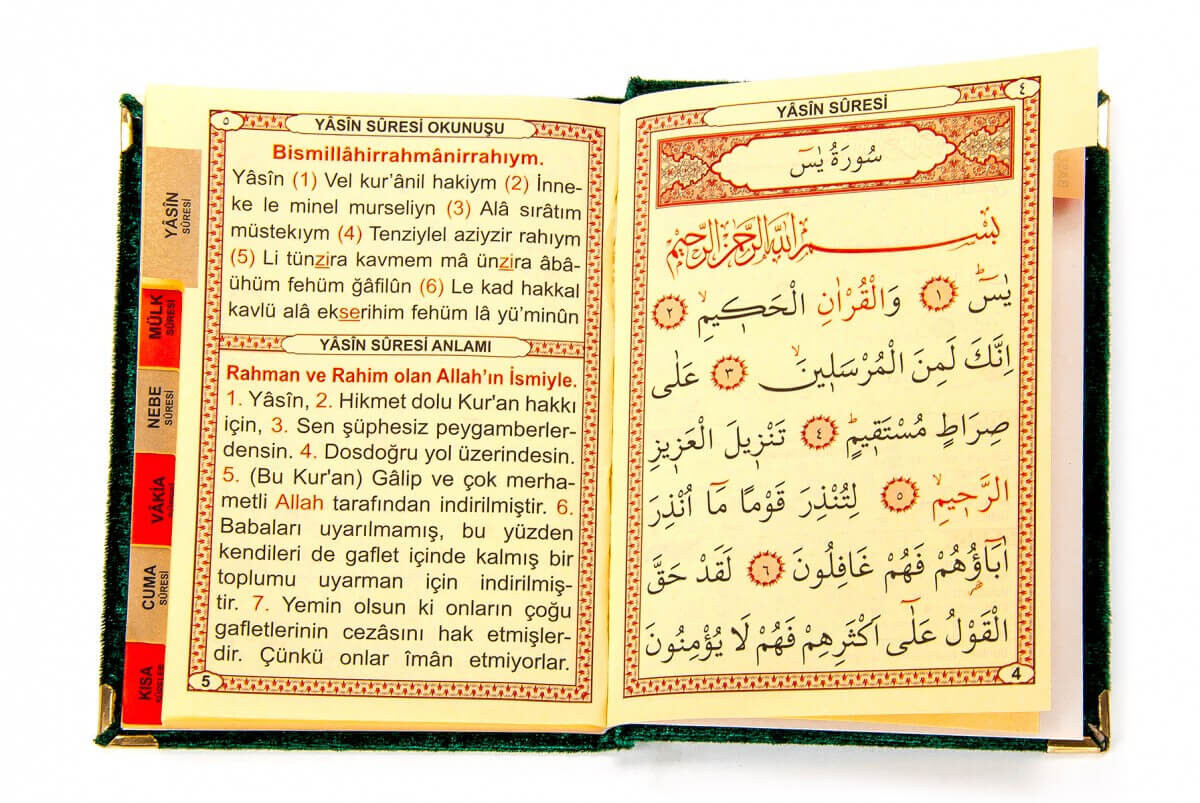 ٤
YÂSÎN SÛRESİ
سُورَةُ يٰسٓ
بِسْمِ اللّٰهِ الرَّحْمٰنِ الرَّحٖيمِ
يٰسٓۜ ﴿١﴾ وَالْقُرْاٰنِ الْحَكٖيمِۙ ﴿٢﴾
اِنَّكَ لَمِنَ الْمُرْسَلٖينَۙ ﴿٣﴾ عَلٰى
صِرَاطٍ مُسْتَقٖيمٍۜ ﴿٤﴾ تَنْزٖيلَ الْعَزٖيزِ
الرَّحٖيمِۙ ﴿٥﴾ لِتُنْذِرَ قَوْمًا مَٓا اُنْذِرَ
اٰبَٓاؤُ۬هُمْ فَهُمْ غَافِلُونَ ﴿٦﴾ لَقَدْ حَقَّ
الْقَوْلُ عَلٰٓى اَكْثَرِهِمْ فَهُمْ لَا يُؤْمِنُونَ
4
٥
YÂSÎN SÛRESİ OKUNUŞU
Bismillâhirrahmânirrahıym.
Yâsîn (1) Vel kur’ânil hakiym (2) İnne-
ke le minel murseliyn (3) Alâ sırâtım
müstekıym (4) Tenziylel aziyzir rahıym
(5) Li tünzira kavmem mâ ünzira âbâ-
ühüm fehüm ğâfilûn (6) Le kad hakkal
kavlü alâ ekserihim fehüm lâ yü’minûn
YÂSÎN SÛRESİ ANLAMI
Rahman ve Rahim olan Allah’ın İsmiyle.
1. Yâsîn, 2. Hikmet dolu Kur'an hakkı
için, 3. Sen şüphesiz peygamberler-
densin. 4. Dosdoğru yol üzerindesin.
5. (Bu Kur'an) Gâlip ve çok merha-
metli Allah tarafından indirilmiştir. 6.
Babaları uyarılmamış, bu yüzden
kendileri de gaflet içinde kalmış bir
toplumu uyarman için indirilmiş-
tir. 7. Yemin olsun ki onların çoğu
gafletlerinin cezâsını hak etmişler-
dir. Çünkü onlar îmân etmiyorlar.
5
YÂSÎN
SÛRESİ
MÜLK
SÛRESİ
NEBE
SÛRESİ
VÂKİA
CUMA
SÛRESİ
KISA